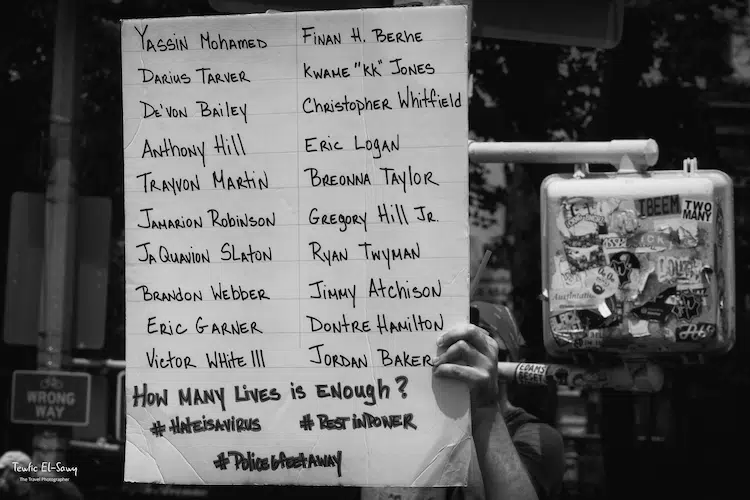 Yassin Mohamed
Darius Tarver
De'von Bailey
Anthony Hill
Trayvon Martin
Jamarion Robinson
JaQuavion Slaton
Brandon Webber
Eric Garner
Victor White III
Finan H. Berhe
Kwame "KK" Jones
Christopher Whitfield
Eric Logan
Breonna Taylor
Gregory Hill Jr.
Ryan Twyman
Jimmy Atchison
Dontre Hamilton
Jordan Baker
How Many Lives is Enough?
#Hateisavirus #RestinPower
#Police6feetaway
IBEEM
TWO
MANY
WRONG
WAY
Tewfic El-Sawy
The Travel Photographer